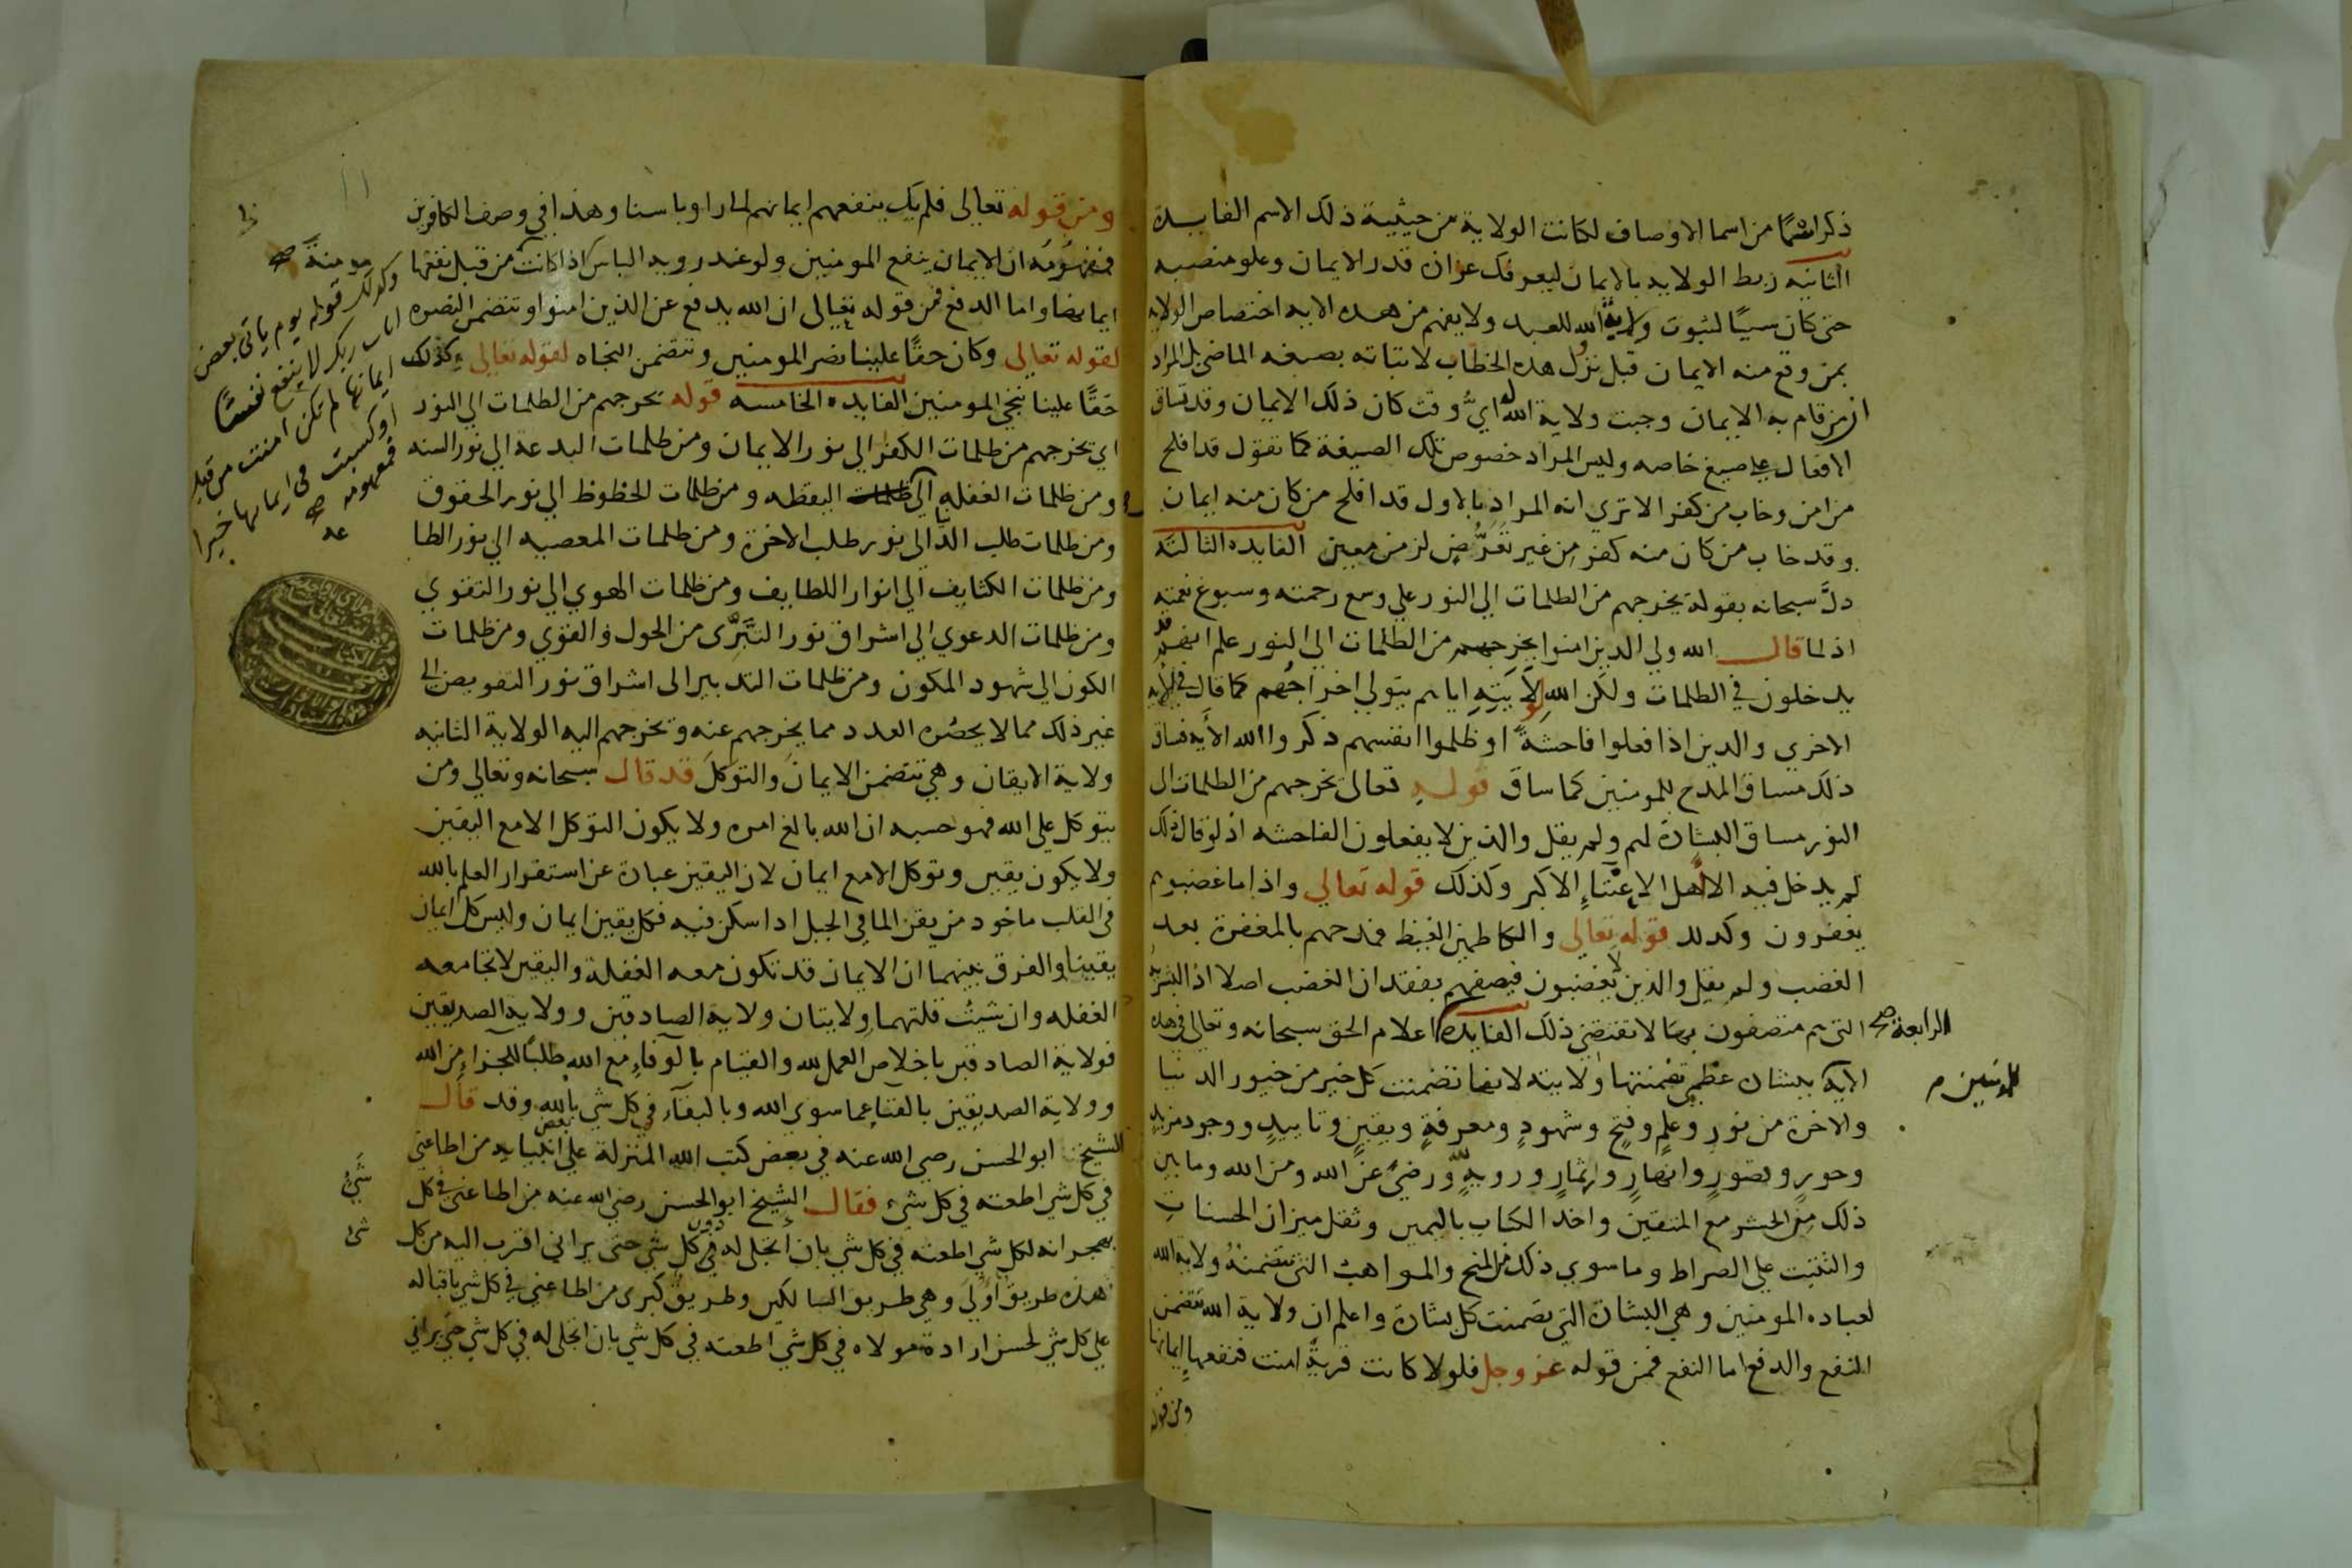 ذكر اسما من اسما الاوصاف لكانت الولاية من حيثية ذلك الاسم الفايدة
الثانيه ربط الولايه بالايمان ليعرفك عزازة قدر الايمان وعلو منصبه
حتى كان سببًا لثبوت ولاية الله للعبد ولا يفهم من هده الايه اختصاص الولايه
بمن وقع منه الايمان قبل نزول هده الخطاب لاتيانه بصيغه الماضي بل المراد
ان من قام به الايمان وجبت ولاية الله له ايُّ وقت كان ذلك الايمان وقد تساق
الافعال على صيغ خاصه وليس المراد خصوص تلك الصيغة كما تقول قد افلح
من امن وخاب من كفر الا تري انه المراد بالاول قد افلح من كان منه ايمان
وقد خاب من كان منه كفر من غير تعرُّض لزمن معين الفايده الثالثه
دلَّ سبحانه بقوله يخرجهم من الظلمات الي النور علي وسع رحمته وسبوغ نعمته
اذ لما قال الله ولي الدين امنوا يخرجهم من الظلمات الي النور علم انهم قد
يدخلون في الظلمات ولكن الله لولايته اياهم يتولي اخراجهم كما قال في الآيه
الاخري والدين اذا فعلوا فاحشة او ظلموا انفسهم ذكروا الله الأيه فساق
ذلك مساق المدح للمومنين كما ساق قوله تعالى يخرجهم من الظلمات الى
النور مساق البشارة لهم ولم يقل والذين لا يفعلون الفاحشه اذ لو قال ذلك
لم يدخل فيه الا اهل الاعتناء الاكبر وكذلك قوله تعالي واذا ما غضبوا هم
يغفرون وكدلك قوله تعالي والكاظمين الغيظ فمدحهم بالمغفرة بعد
الغضب ولم يقل والذين لا يغضبون فيصفهم بفقدان الغضب اصلا اذ البشرية
التى هم متصفون بها لا تقتضي ذلك الفايدة اعلام الحق سبحانه وتعالي في هده
الرابعة صح
الآية بشان عظيم تضمنتها ولايته لانها تضمنت كل خير من خيور الدنيا
للمومنين
والاخرة من نور وعلم وفتح وشهود ومعرفة ويقين وتاييد ووجود مزيد
وحور وقصور وانهار واثمار وروية ورضي عن الله ومن الله وما بين
ذلك من الحشر مع المتقين واخد الكتاب باليمين وثقل ميزان الحسنات
والتثبت علي الصراط وما سوي ذلك من المنح والمواهب التى تتضمنه ولاية الله
لعباده المومنين وهي البشارة التي تضمنت كل بشارة واعلم ان ولاية الله تتضمن
النفع والدفع اما النفع فمن قوله عز وجل فلولا كانت قرية امنت فنفعها ايمانها
ومن قوله
ومن قوله تعالى فلم يك ينفعهم ايمانهم لما راوا باسنا وهذا في وصف الكافرين
فمفهومه ان الايمان ينفع المومنين ولو عند رويه الباس اذا كانت من قبل نفعها
ايمانها واما الدفع فمن قوله تعالى ان الله يدفع عن الذين امنوا وتتضمن النصره
لقوله تعالى وكان حقًا علينا نصر المومنين وتتضمن النجاه لقوله تعالى كذلك
حقًا علينا ننجي المومنين الفايده الخامسه قوله يخرجهم من الظلمات الي النور
اي يخرجهم من ظلمات الكفر الي نور الايمان ومن ظلمات البدعة الي نور السنه
ومن ظلمات الغفله الي ظلمات اليقظه ومن ظلمات الحظوظ الي نور الحقوق
ومن ظلمات طلب الدنيا الي نور طلب الاخرة ومن ظلمات المعصيه الي نور الطا
ومن ظلمات الكثايف الي انوار اللطايف ومن ظلمات الهوي الي نور التقوي
ومن ظلمات الدعوي الي اشراق نور التبرّى من الحول والقوي ومن ظلمات
الكون الي شهود المكون ومن ظلمات التدبير الى اشراق نور التفويض الى
غير ذلك مما لا يحصره العدد مما يخرجهم عنه ويخرجهم اليه الولاية الثانيه
ولاية الايقان وهي تتضمن الايمان والتوكل قد قال سبحانه وتعالي ومن
يتوكل على الله فهو حسبه ان الله بالغ امره ولا يكون التوكل الا مع اليقين
ولا يكون يقين وتوكل الا مع ايمان لان اليقين عبارة عن استقرار العلم بالله
في القلب ماخود من يقن الما في الجبل ادا سكن فيه فكل يقين ايمان وليس كل ايمان
يقينا والفرق بينهما ان الايمان قد تكون معه الغفلة واليقين لا تجامعه
الغفله وان شيت قلت هما ولايتان ولاية الصادقين وولاية الصديقين
فولاية الصادقين باخلاص العمل لله والقيام بالوفاء مع الله طلبًا للجزاء من الله
وولاية الصديقين بالفناء عما سوي الله وبالبقآء في كل شي بالله وقد قال
الشيخ ابو الحسن رضي الله عنه في بعض كتب الله المنزلة علي بعض انبيايه من اطاعني
في كل شي اطعته في كل شيء فقال الشيخ ابو الحسن رضي الله عنه من اطاعني في كل شَيْءٍ
بهجرانه لكل شي اطعته في كل شي بان اتجلى له دون كل شي حتى يراني اقرب اليه من كل شئ
هذه طريق اولى وهي طريق السالكين وطريق كبرى من اطاعني في كل شي باقباله
علي كل شي لحسن ارادة مولاه في كل شي اطعته في كل شي بان اتجلى له في كل شي حتي يراني
وكدلك قوله يوم ياتى بعض
ايات ربك لا ينفع نفسًا
ايمانها لم تكن امنت من قبل
او كسبت في ايمانها خيرا
فمفهومه
مومنة صح